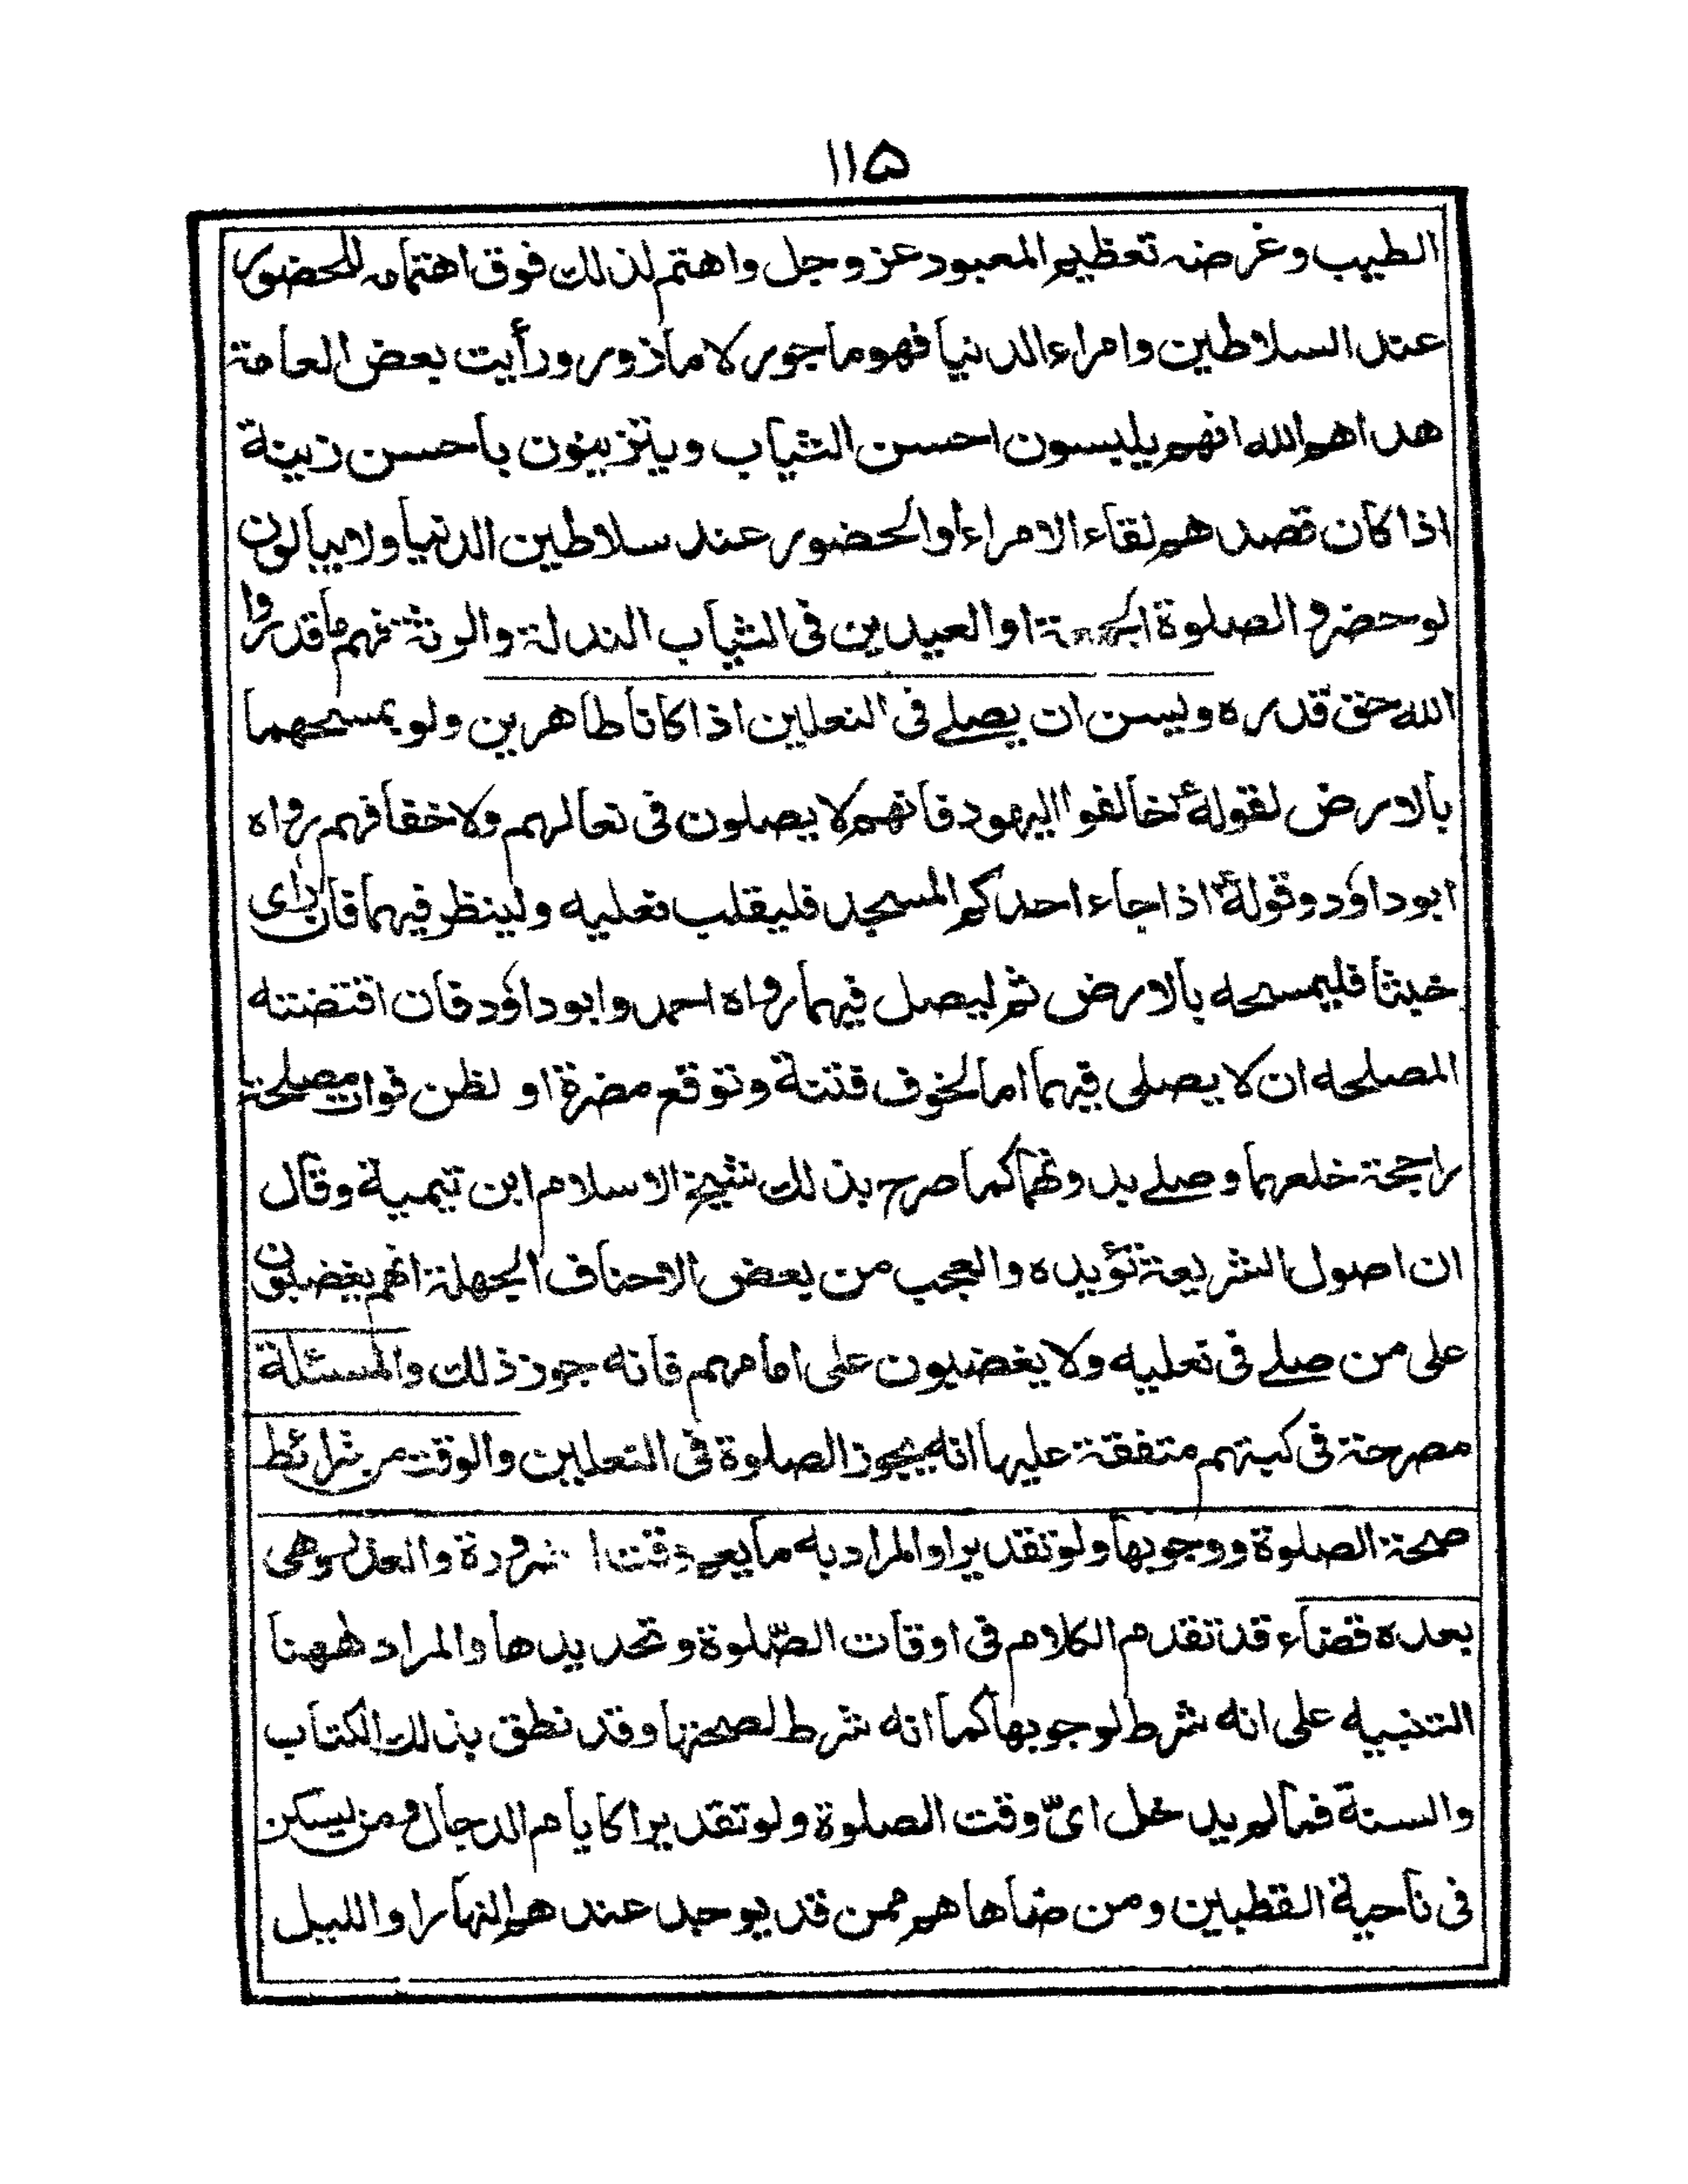 ١١۵
الطيب وغرضه تعظيم المعبود عز وجل واهتم لذلك فوق اهتمامه للحضور
عند السلاطين وامراء الدنيا فهو ماجور لا ماذور ورأيت بعض العامة
هداهم الله انهم يلبسون احسن الثياب ويتزينون باحسن زينة
اذا كان قصدهم لقاء الامراء او الحضور عند سلاطين الدنيا ولا يبالون
لو حضروا الصلوة الجمعة او العيدين فى الثياب البذلة والوثة فهم ما قدروا
الله حق قدره وليسن ان يصلے فى النعلين اذا كانا طاهرين ولو بمسحهما
بالارض لقوله ؑ خالفوا اليهود فانهم لا يصلون فى نعالهم ولا خفافهم رواه
ابو داؤد وقوله ؑ اذا جاء احدكم المسجد فليقلب نعليه ولينظر فيهما فان رأى
خبثا فليمسحه بالارض ثم ليصل فيهما رواه احمد وابو داؤد فان اقتضته
المصلحه ان لا يصلى فيهما اما لخوف فتنة وتوقع مضرة او لظن فوات مصلحة
راجحة خلعهما وصلے بدونهما كما صرح بذلك شيخ الاسلام ابن تيمية وقال
ان اصول الشريعة تؤيده والعجب من بعض الاحناف الجهلة انهم يغضبون
على من صلے فى نعليه ولا يغضبون على امامهم فانه جوز ذلك والمسئلة
مصرحة فى كتبهم متفقة عليها انه يجوز الصلوة فى النعلين والوقت من شرائط
صحة الصلوة ووجوبها ولو تقديرا والمراد به ما يعم وقت ا ضرورة والعذر وهى
بعده قضاء قد تقدم الكلام فى اوقات الصّلوة وتحديدها والمراد ههنا
التنبيه على انه شرط لوجوبها كما انه شرط لصحتها وقد نطق بذلك الكتاب
والسنة فما لم يدخل اىّ وقت الصلوة ولو تقديرا كايام الدجال ومن يسكن
فى ناحية القطبين ومن ضاهاهم ممن قد يوجد عندهم النهار او الليل